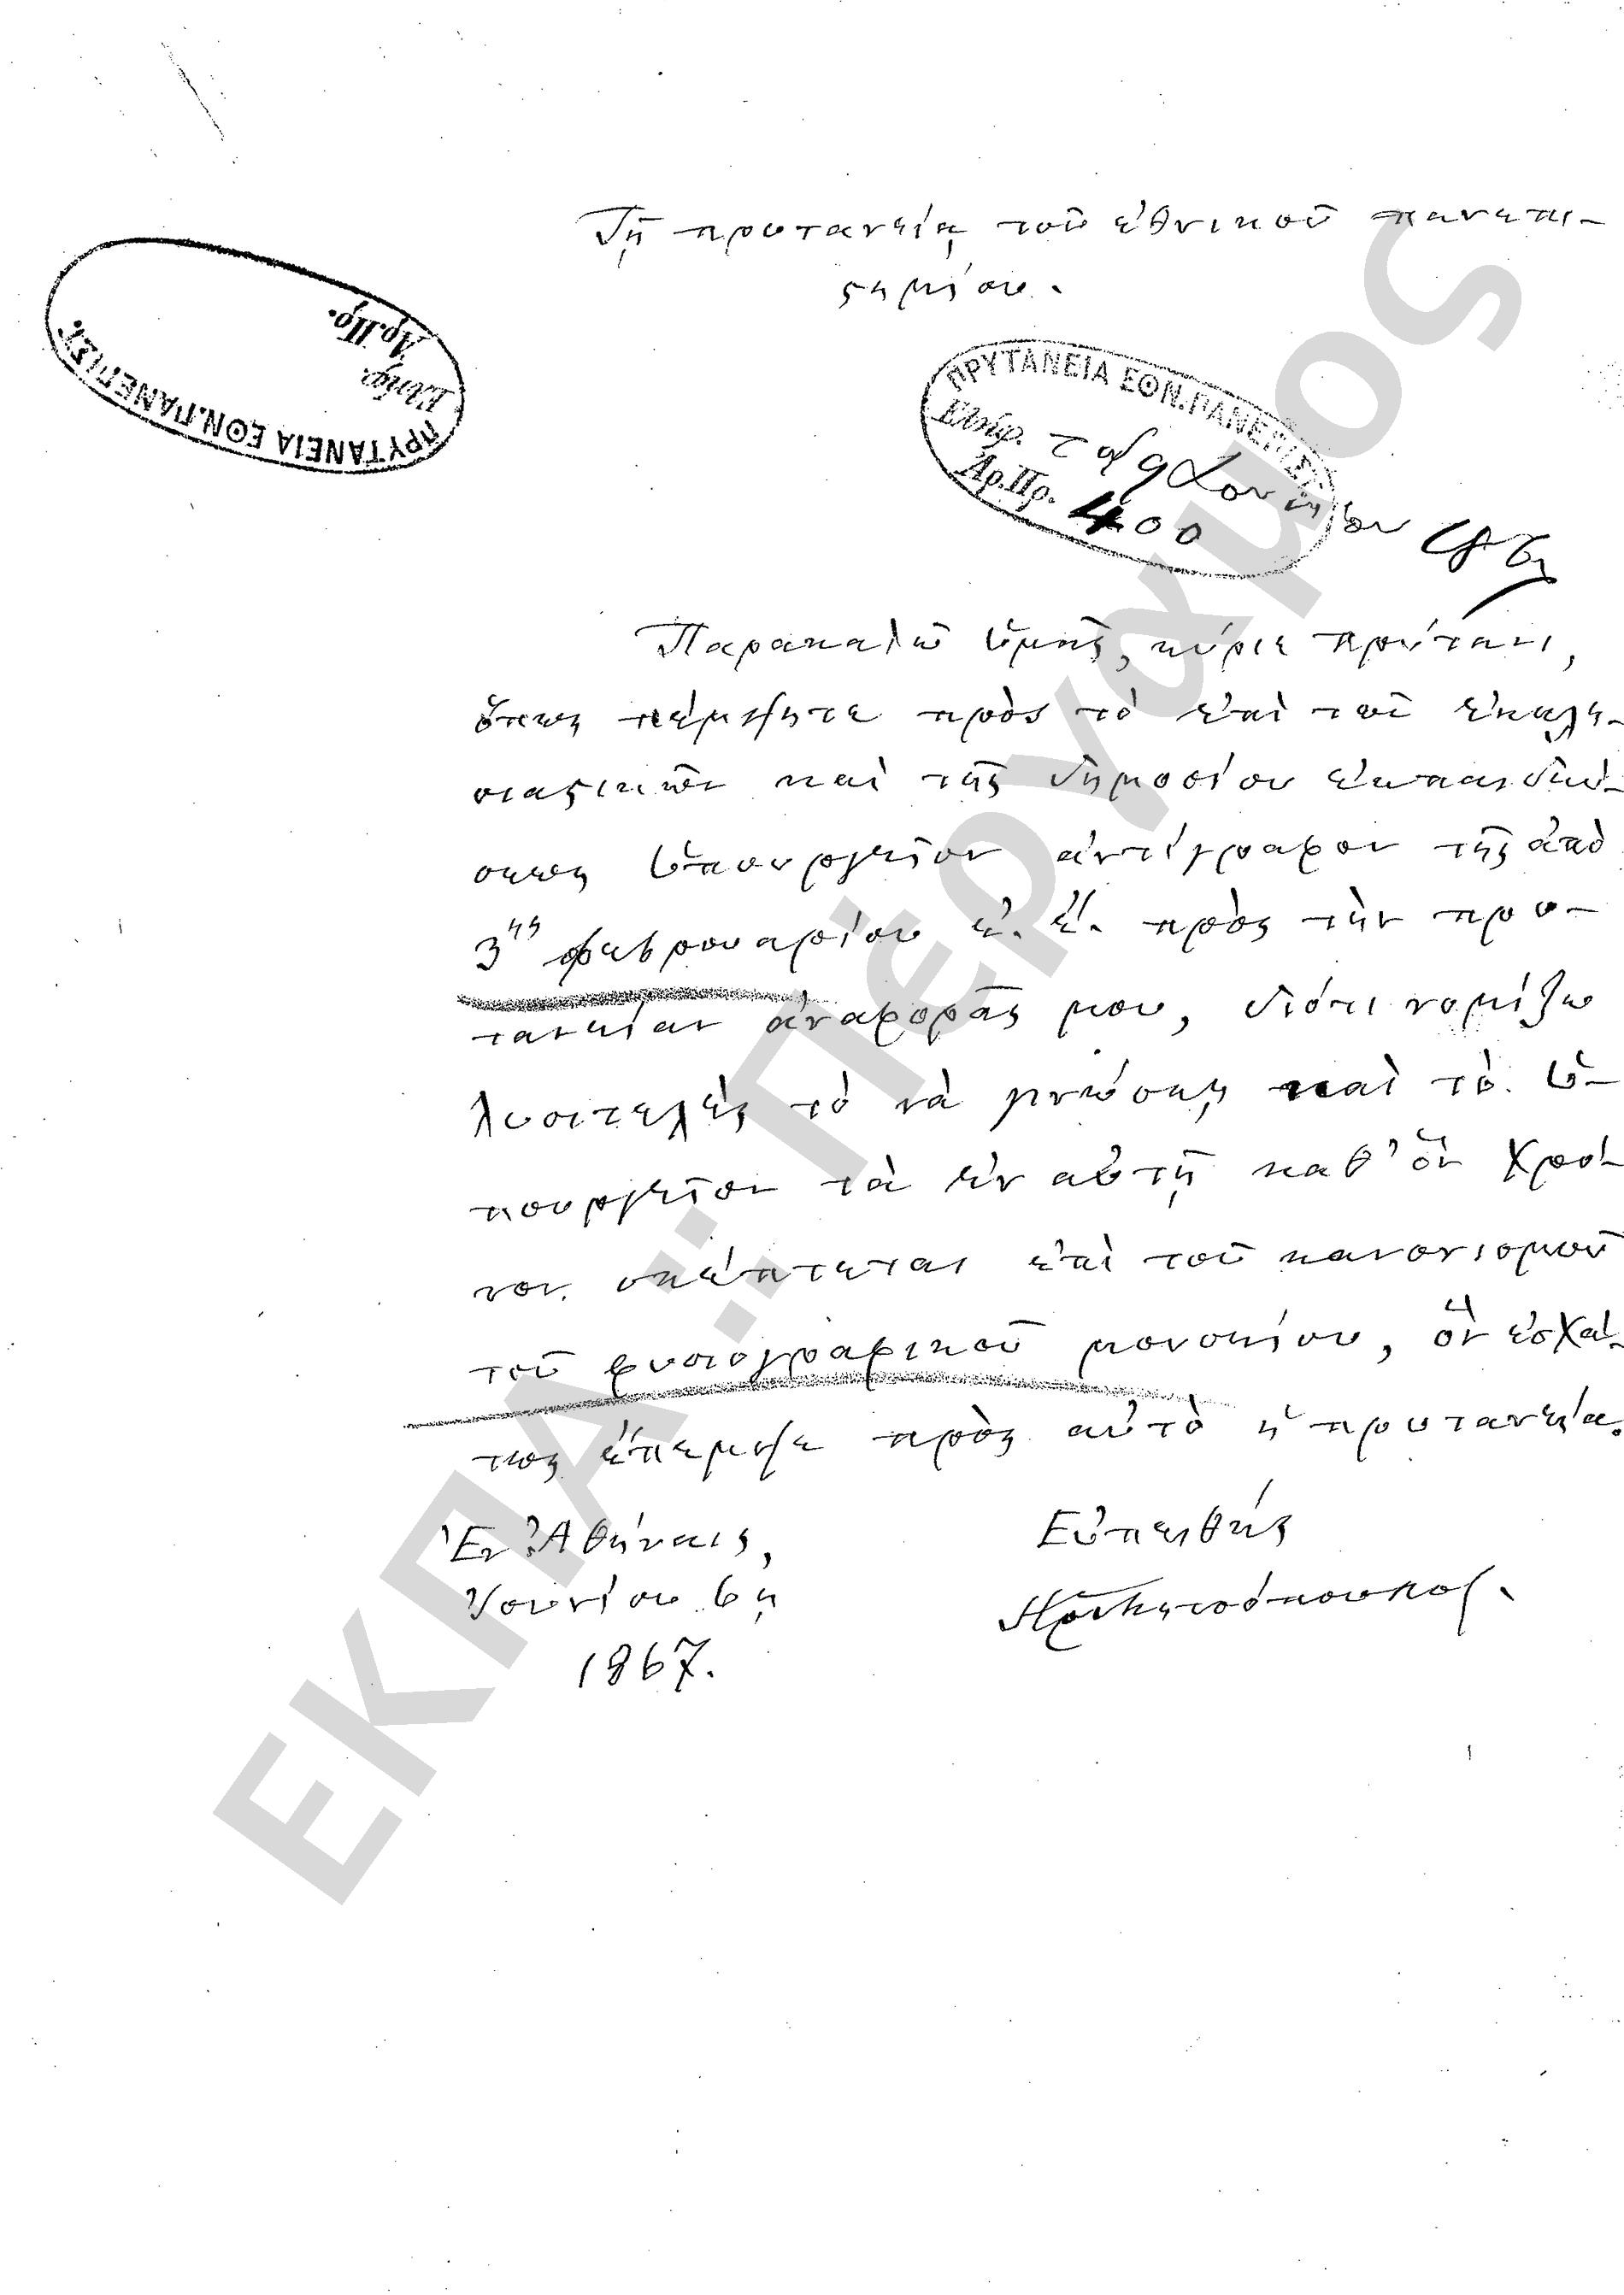 Τῇ πρυτανείᾳ τοῦ ἐθνικοῦ πανεπι-
ϛημίου.
ΠΡΥΤΑΝΕΙΑ ΕΘΝ. ΠΑΝΕΠΙΣΤ.
Ἐλήφ.
Ἀρ.Πρ.
ΠΡΥΤΑΝΕΙΑ ΕΘΝ. ΠΑΝΕΠΙΣΤ.
Ἐλήφ. τῇ 9 Ἰουνίου 1867
Ἀρ.Πρ. 400
Παρακαλῶ ὑμᾶς, κύριε πρύτανι,
ὅπως πέμψητε πρὸς τὸ ἐπὶ τῶν ἐκκλη-
σιαϛικῶν καὶ τῆς δημοσίου ἐκπαιδεύ-
σεως ὑπουργεῖον ἀντίγραφον τῆς ἀπὸ
3ης φεβρουαρίου ἐ. ἔ. πρὸς τὴν πρυ-
τανείαν ἀναφορᾶς μου, διότι νομίζω
λυσιτελὲς τὸ νὰ γνώσῃ καὶ τὸ ὑ-
πουργεῖον τὰ ἐν αὐτῇ καθ' ὃν χρό-
νον σκέπτεται ἐπὶ τοῦ κανονισμοῦ
τοῦ φυσιογραφικοῦ μουσείου, ὃν ἐσχά-
τως ἔπεμψε πρὸς αὐτὸ ἡ πρυτανεία.
Ἐν Ἀθήναις,
Ἰουνίου 6ῃ
1867.
Εὐπειθής
ΕΚΠΑ : Πέργαμος